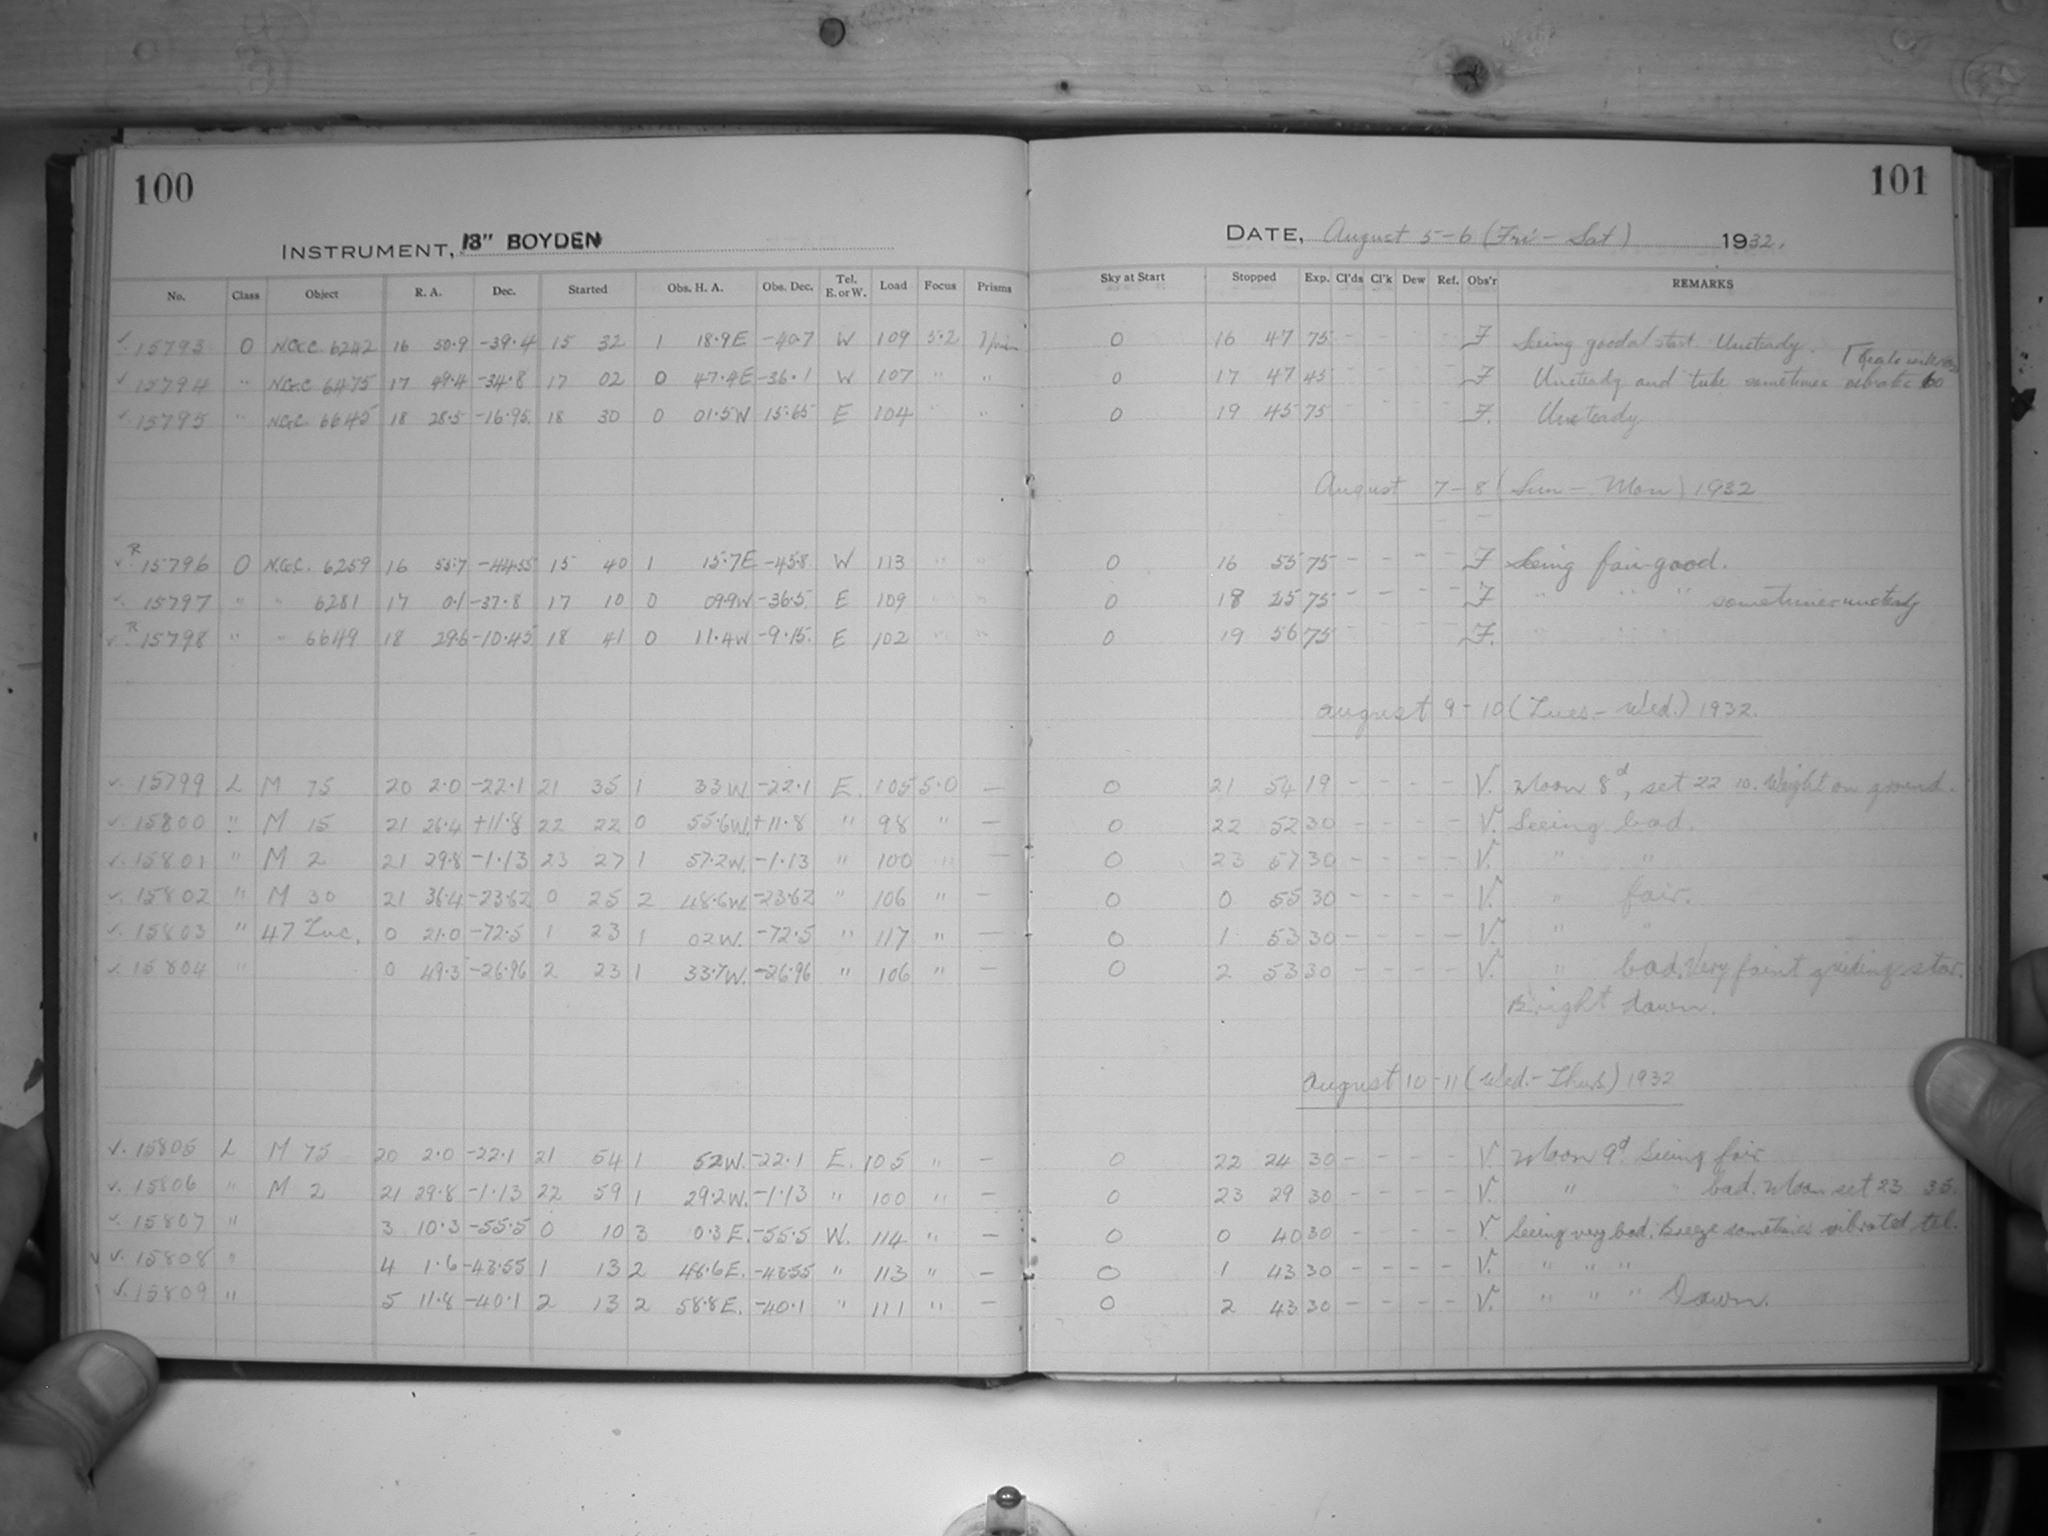 100
INSTRUMENT, 13" BOYDEN
No. Class Object R. A. Dec. Started Obs. H. A. Obs. Dec. Tel. E. or W. Load Focus Prisms
✓ 15793 O N.G.C. 6242 16 50.9 -39.4 15 32 1 18.9E -40.7 W 109 5.2
✓ 15794 " N.G.C 6475 17 49.4 -34.8 17 02 0 47.4E -36.1 W 107 " "
✓ 15795 " N.G.C. 6645 18 28.5 -16.95 18 30 0 01.5W 15.65 E 104 " "
✓ R 15796 O N.G.C. 6259 16 55.7 -44.55 15 40 1 15.7E -45.8 W 113 " "
✓ 15797 " " 6281 17 0.1 -37.8 17 10 0 09.9W -36.5 E 109 " "
✓ R 15798 " " 6649 18 29.6 -10.45 18 41 0 11.4W -9.15 E 102 " "
✓ 15799 L M 75 20 2.0 -22.1 21 35 1 33W. -22.1 E. 105 5.0 —
✓ 15800 " M 15 21 26.4 +11.8 22 22 0 55.6W. +11.8 " 98 " —
✓ 15801 " M 2 21 29.8 -1.13 23 27 1 57.2W. -1.13 " 100 " —
✓ 15802 " M 30 21 36.4 -23.62 0 25 2 48.6W. -23.62 " 106 " —
✓ 15803 " 47 Tuc. 0 21.0 -72.5 1 23 1 02W. -72.5 " 117 " —
✓ 15804 " 0 49.3 -26.96 2 23 1 33.7W. -26.96 " 106 " —
✓ 15805 L M 75 20 2.0 -22.1 21 54 1 52W. -22.1 E. 105 " —
✓ 15806 " M 2 21 29.8 -1.13 22 59 1 29.2W. -1.13 " 100 " —
✓ 15807 " 3 10.3 -55.5 0 10 3 0.3E. -55.5 W. 114 " —
✓ 15808 " 4 1.6 -43.55 1 13 2 48.6E. -43.55 " 113 " —
✓ 15809 " 5 11.8 -40.1 2 13 2 58.8E. -40.1 " 111 " —
101
DATE, August 5-6 (Fri - Sat) 1932.
Sky at Start Stopped Exp. Cl'ds Cl'k Dew Ref. Obs'r REMARKS
0 16 47 75 - - - - F Seeing good at start. Unsteady.
0 17 47 45 - - - - F Unsteady and tube sometimes vibrates
0 19 45 75 - - - - F. Unsteady
August 7-8 (Sun - Mon) 1932
0 16 55 75 - - - - F Seeing fair-good.
0 18 25 75 - - - - F " " " sometimes unsteady
0 19 56 75 - - - - F. " " "
August 9-10 (Tues. - Wed.) 1932.
0 21 54 19 - - - - V. Moon 8d, set 22 10. Weight on ground.
0 22 52 30 - - - - V. Seeing bad.
0 23 57 30 - - - - V. " "
0 0 55 30 - - - - V. " fair.
0 1 53 30 - - - - V. " "
0 2 53 30 - - - - V. " bad. Very faint guiding star.
Bright dawn.
August 10-11 (Wed. - Thurs.) 1932
0 22 24 30 - - - - V. Moon 9d. Seeing fair
0 23 29 30 - - - - V. " " bad. Moon set 23 35.
0 0 40 30 - - - - V Seeing very bad. Breeze sometimes vibrated tel.
0 1 43 30 - - - - V. " " "
0 2 43 30 - - - - V. " " " Dawn.